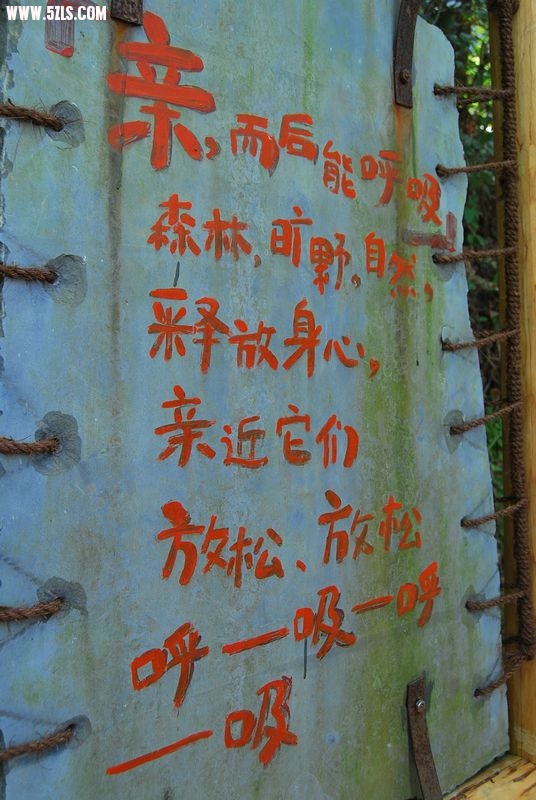 WWW.5ZLS.COM
亲,而后能呼吸
森林,旷野,自然,
释放身心,
亲近它们
放松、放松
呼一吸一呼
一吸